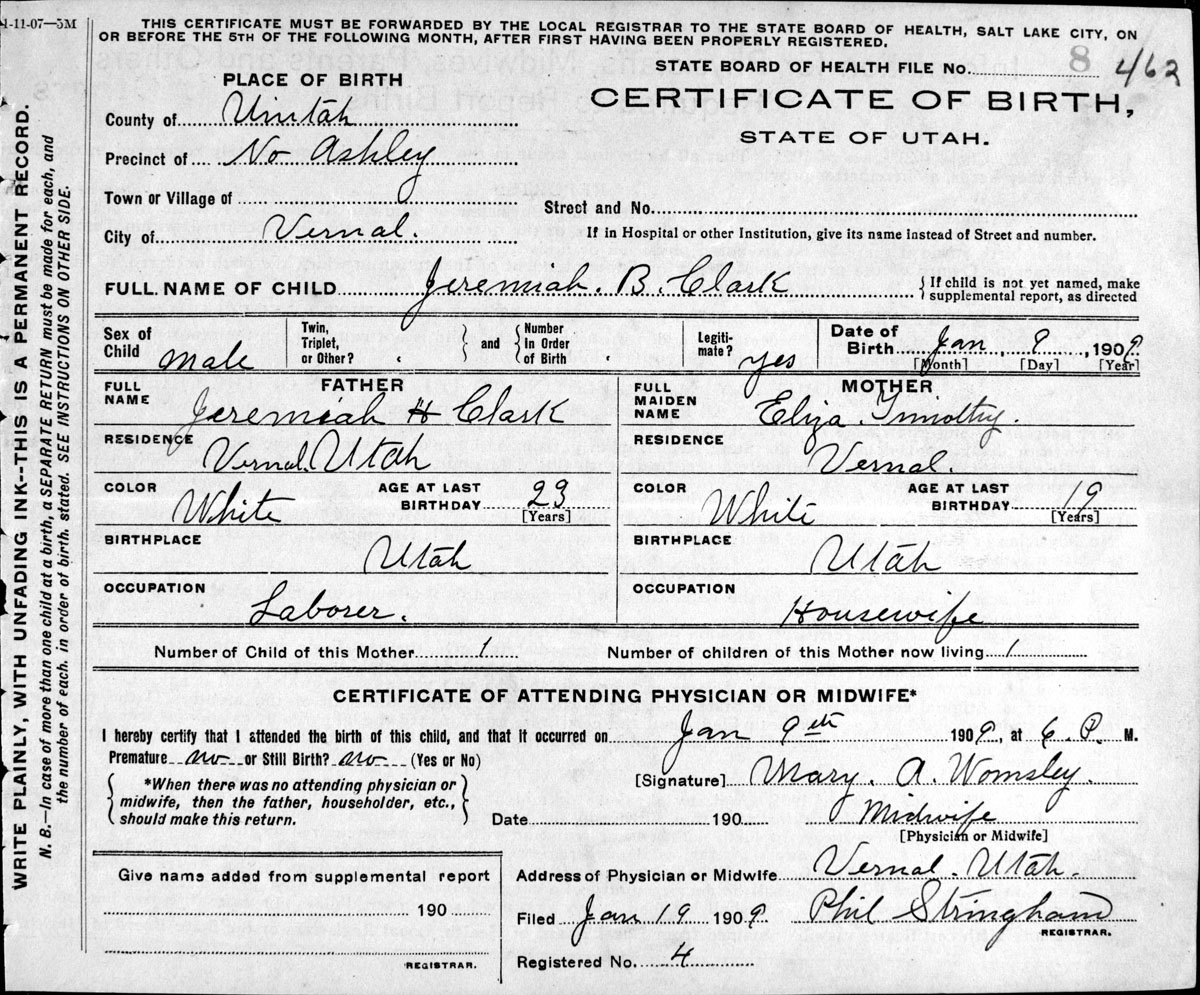 1-11-07—5M
THIS CERTIFICATE MUST BE FORWARDED BY THE LOCAL REGISTRAR TO THE STATE BOARD OF HEALTH, SALT LAKE CITY, ON
OR BEFORE THE 5TH OF THE FOLLOWING MONTH, AFTER FIRST HAVING BEEN PROPERLY REGISTERED.
WRITE PLAINLY, WITH UNFADING INK--THIS IS A PERMANENT RECORD.
N. B.—In case of more than one child at a birth, a SEPARATE RETURN must be made for each, and
the number of each, in order of birth, stated. SEE INSTRUCTIONS ON OTHER SIDE.
STATE BOARD OF HEALTH FILE No. 8 462
PLACE OF BIRTH
CERTIFICATE OF BIRTH,
STATE OF UTAH.
County of Uintah
Precinct of No Ashley
Town or Village of
Street and No.
City of Vernal.
If in Hospital or other Institution, give its name instead of Street and number.
FULL NAME OF CHILD Jeremiah. B. Clark { If child is not yet named, make
supplemental report, as directed
Sex of Child Male
Twin, Triplet, or Other? } and { Number In Order of Birth
Legiti-mate? yes
Date of Birth Jan 9, 1909
[Month] [Day] [Year]
FATHER
FULL NAME Jeremiah H Clark
RESIDENCE Vernal. Utah
COLOR White AGE AT LAST BIRTHDAY 23 [Years]
BIRTHPLACE Utah
OCCUPATION Laborer.
MOTHER
FULL MAIDEN NAME Eliza. Timothy.
RESIDENCE Vernal.
COLOR White AGE AT LAST BIRTHDAY 19 [Years]
BIRTHPLACE Utah
OCCUPATION Housewife
Number of Child of this Mother 1 Number of children of this Mother now living 1
CERTIFICATE OF ATTENDING PHYSICIAN OR MIDWIFE*
I hereby certify that I attended the birth of this child, and that it occurred on Jan 9th 1909, at 6. P. M.
Premature no or Still Birth? no (Yes or No)
[Signature] Mary. A. Womsley.
{ *When there was no attending physician or
midwife, then the father, householder, etc.,
should make this return. }
Date 190 Midwife
[Physician or Midwife]
Give name added from supplemental report
190
REGISTRAR.
Address of Physician or Midwife Vernal. Utah.
Filed Jan 19 1909. Phil Stringham
REGISTRAR.
Registered No. 4